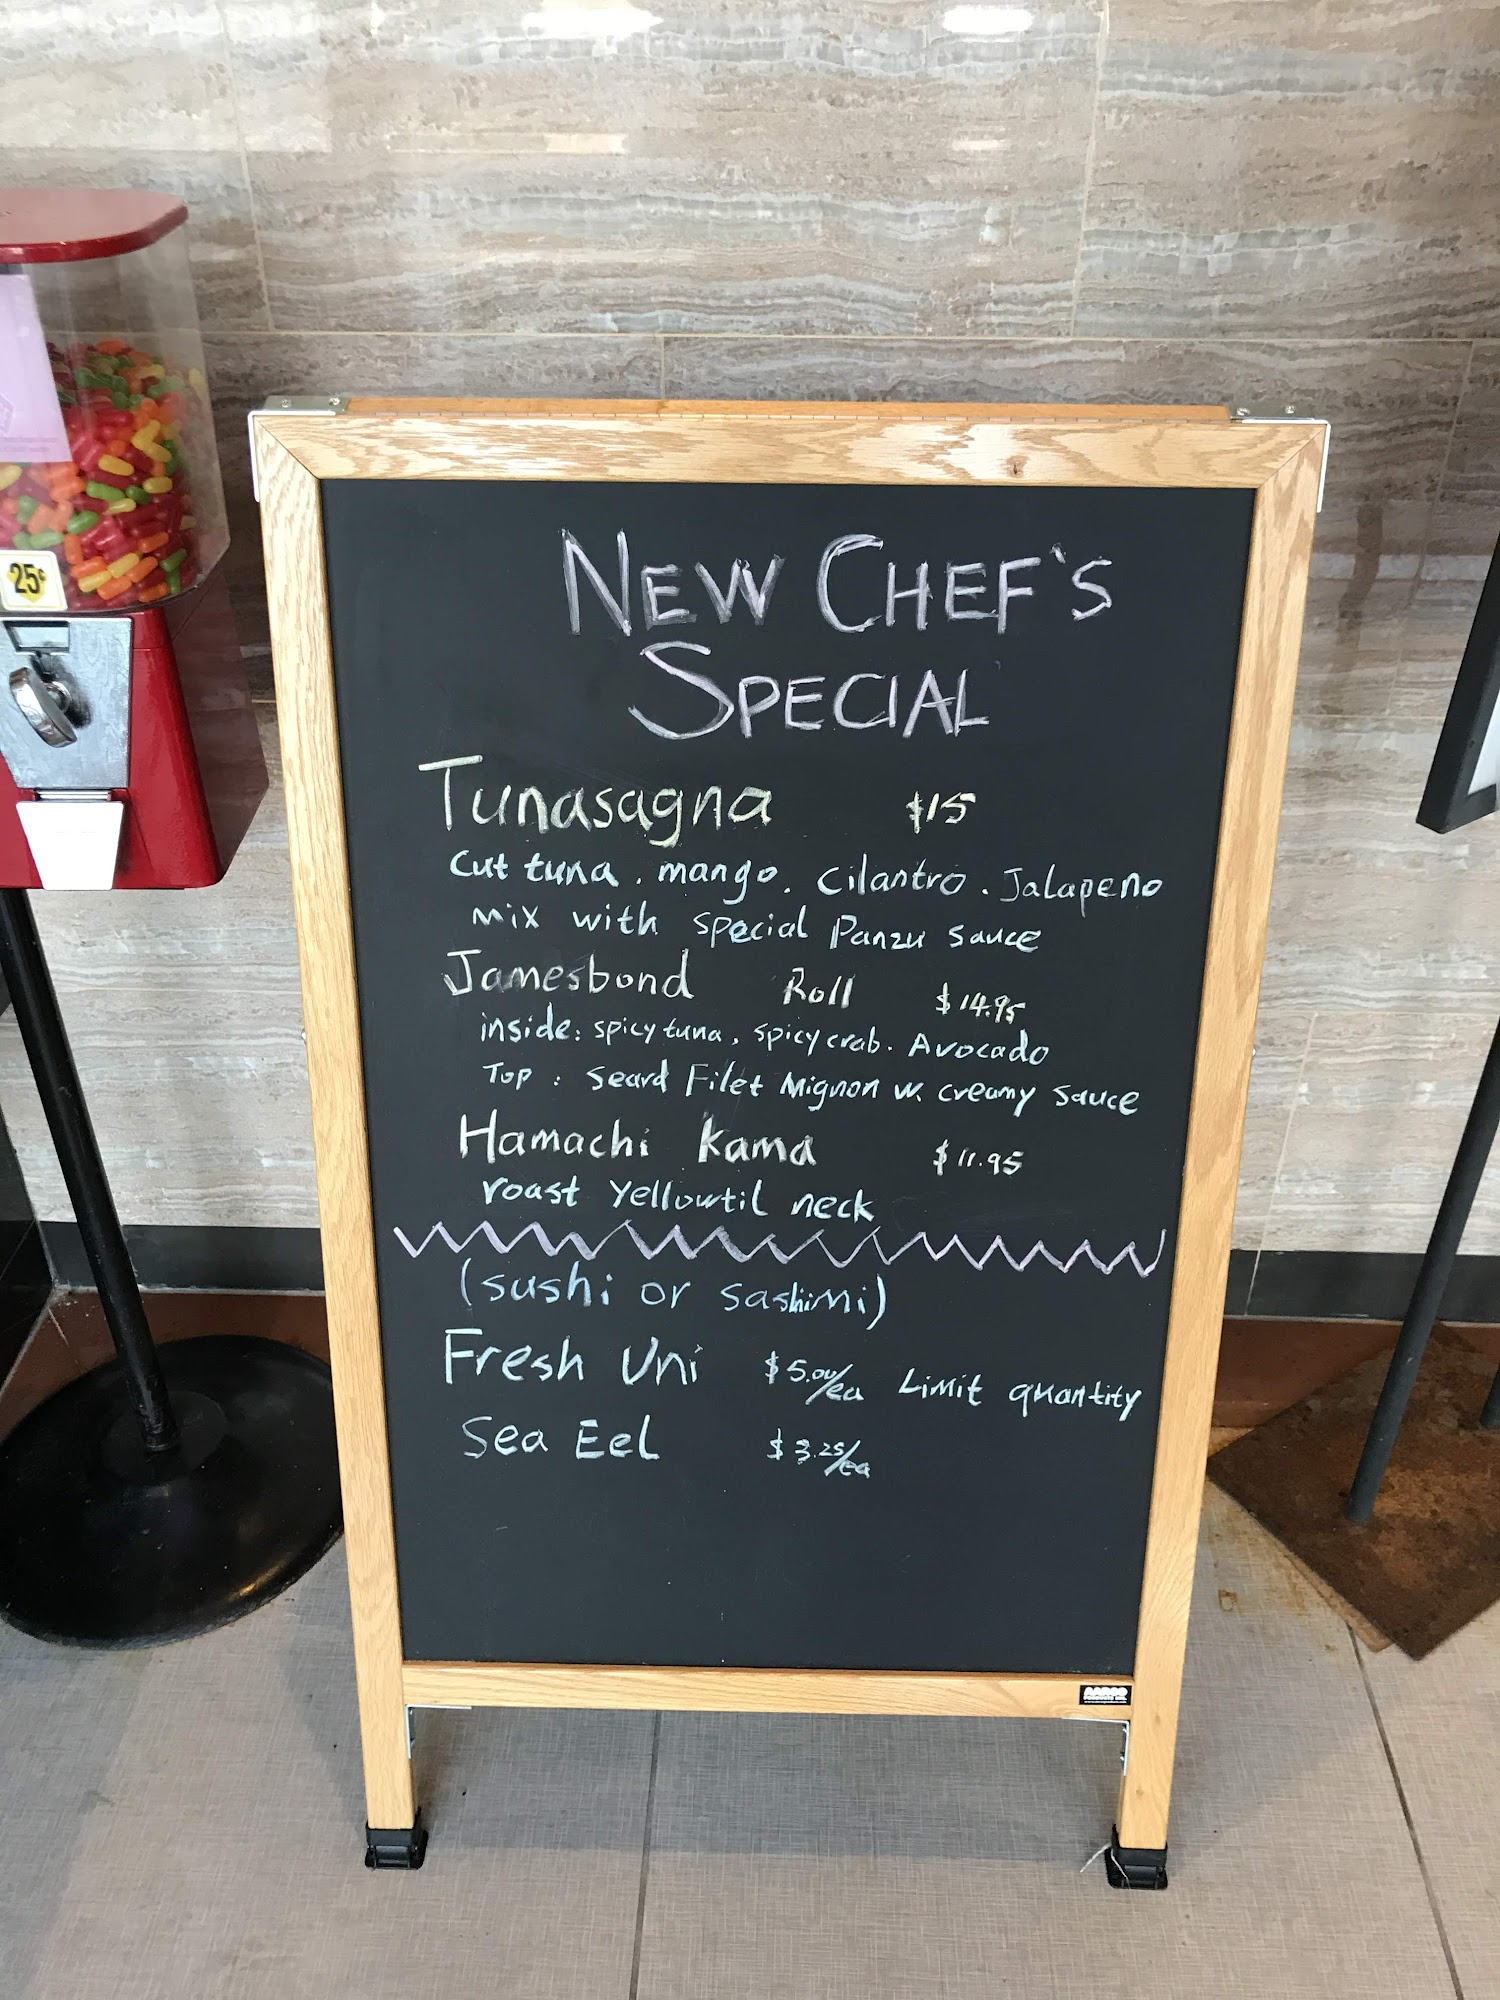 NEW CHEF'S
SPECIAL
Tunasagna $15
Cut tuna. mango. Cilantro. Jalapeno
Mix with special Panzu sauce
Jamesbond Roll $14.95
inside: spicy tuna, spicy crab. Avocado
Top: Seard Filet Mignon w. creamy sauce
Hamachi Kama $11.95
roast Yellowtil neck
(sushi or sashimi)
Fresh Uni $5.00/ea Limit quantity
Sea Eel $3.25/ea
25¢
AARCO
PRODUCTS INC.